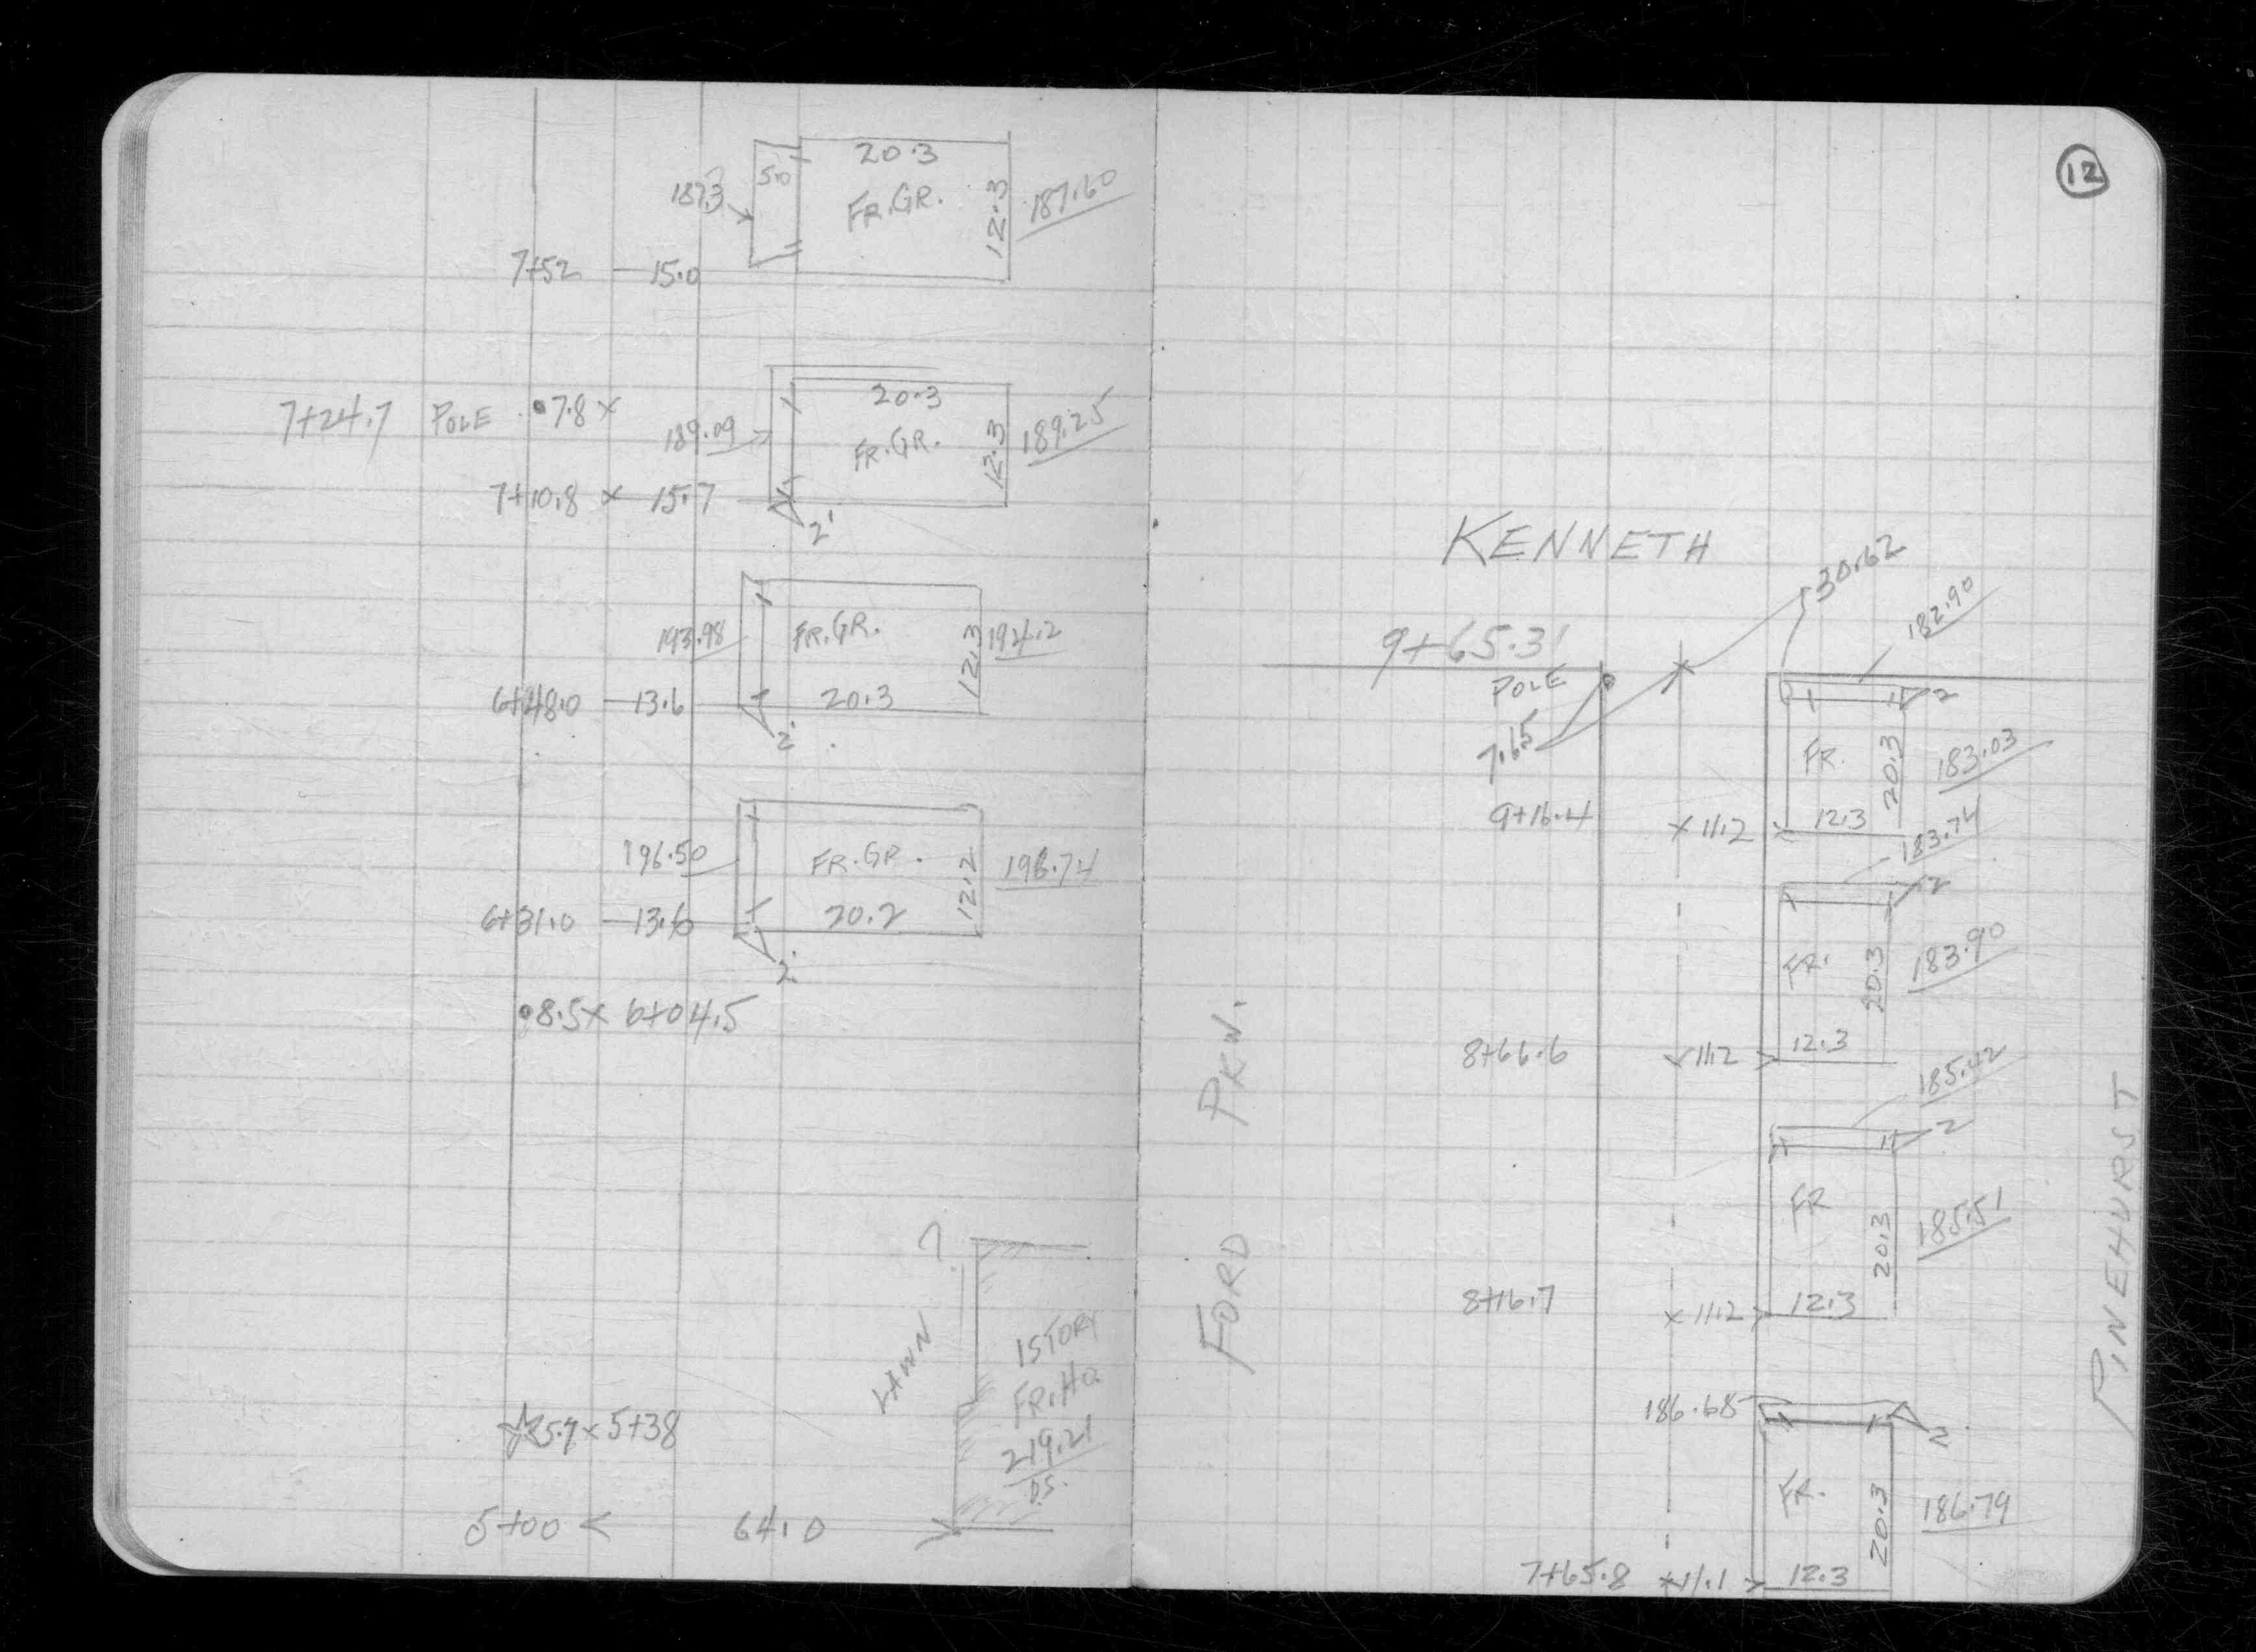 20.3
5.0
187.3
FR.GR.
12.3
187.60
7+52 — 15.0
20.3
7+24.7 POLE 7.8 x
189.09
FR.GR.
12.3
189.25
7+10.8 x 15.7
2'
193.98
FR.GR.
12.3
194.2
6+48.0 — 13.6
20.3
2
196.50
FR.GR.
12.2
196.74
6+31.0 — 13.6
20.2
2
8.5 x 6+04.5
?
LAWN
1 STORY
FR. HO.
219.21
D.S.
x 5+38
5+00 < 64.0
12
KENNETH
30.62
182.90
9+65.3
POLE
2
7.65
FR.
20.3
183.03
9+16.4
x 11.2
12.3
183.74
2
FR.
20.3
183.90
8+66.6
x 11.2
12.3
185.42
2
FR
20.3
185.51
8+16.7
x 11.2
12.3
186.68
2
FR.
20.3
186.79
7+65.8 x 11.1
12.3
FORD PKW.
PINEHURST